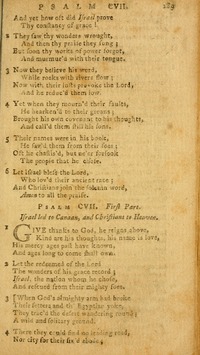 PSALM CVII. 289
And yet how oft did Israel prove
Thy constancy of grace!
2 They saw thy wonders wrought,
And then thy praise they sung;
But soon thy works of power forgot,
And murmur'd with their tongue.
3 Now they believe his word,
While rocks with rivers flow;
Now with their lusts provoke the Lord,
And he reduc'd them low.
4 Yet when they mourn'd their faults,
He hearken'd to their groans;
Brought his own covenant to his thoughts,
And call'd them still his sons.
5 Their names were in his book,
He sav'd them from their foes;
Oft he chastis'd, but ne'er forsook
The people that he chose.
6 Let Israel bless the Lord,
Who lov'd their ancient race;
And Christians join the solemn word,
Amen to all the praise.
PSALM CVII. First Part.
Israel led to Canaan, and Christians to Heaven.
1 GIVE thanks to God, he reigns above,
Kind are his thoughts, his name is love,
His mercy ages past have known,
And ages long to come shall own.
2 Let the redeemed of the Lord
The wonders of his grace record;
Israel, the nation whom he chose,
And rescued from their mighty foes.
3 [When God's almighty arm had broke
Their fetters and th' Egyptian yoke,
They trac'd the desert wandering round;
A wild and solitary ground.
4 There they could find no leading road,
Nor city for their fix'd abode;